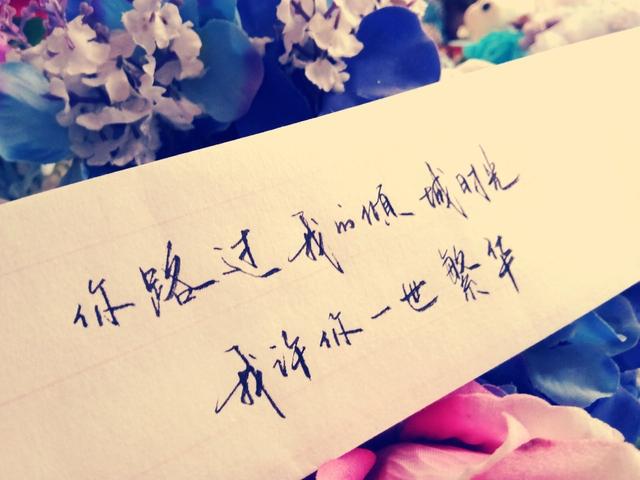 你路过我的倾城时光
我许你一世繁华